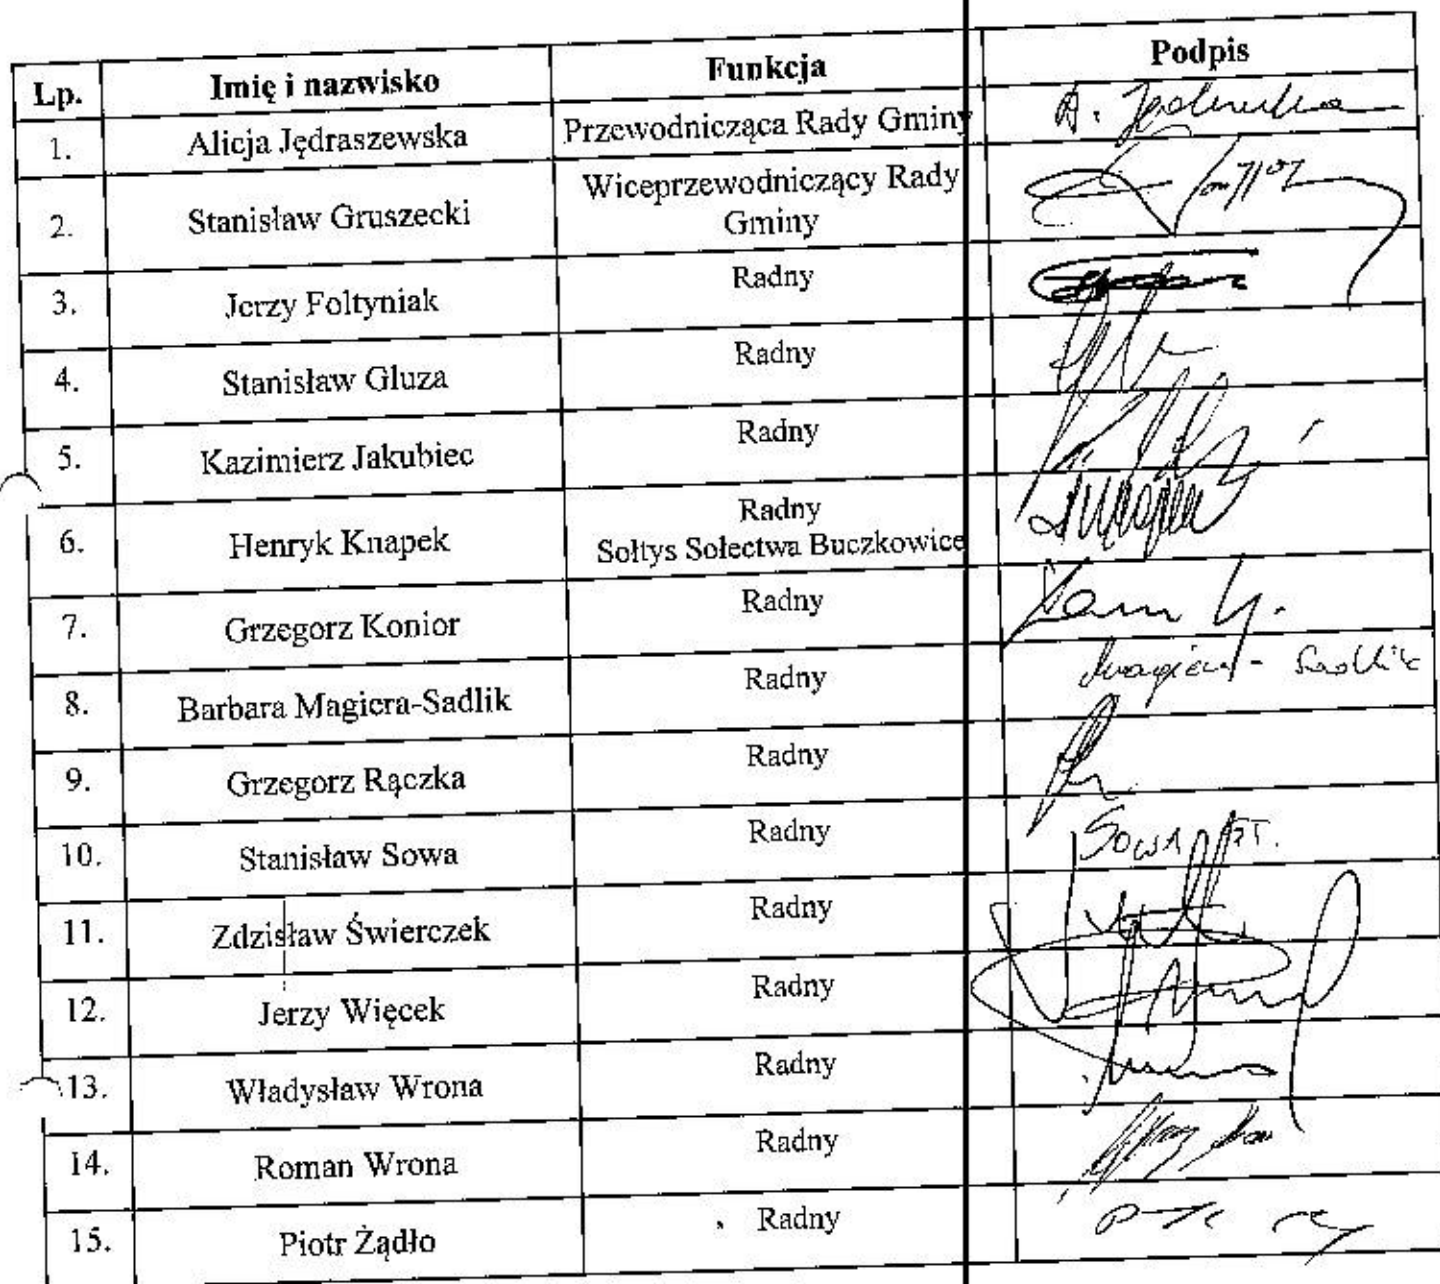 Lp. Imię i nazwisko Funkcja Podpis
1. Alicja Jędraszewska Przewodnicząca Rady Gminy A.
2. Stanisław Gruszecki Wiceprzewodniczący Rady
Gminy
3. Jerzy Foltyniak Radny
4. Stanisław Gluza Radny
5. Kazimierz Jakubiec Radny
6. Henryk Knapek Radny
Sołtys Sołectwa Buczkowice
7. Grzegorz Konior Radny
8. Barbara Magiera-Sadlik Radny Magiera-Sadlik
9. Grzegorz Rączka Radny
10. Stanisław Sowa Radny Sowa St.
11. Zdzisław Świerczek Radny
12. Jerzy Więcek Radny
13. Władysław Wrona Radny
14. Roman Wrona Radny
15. Piotr Żądło Radny